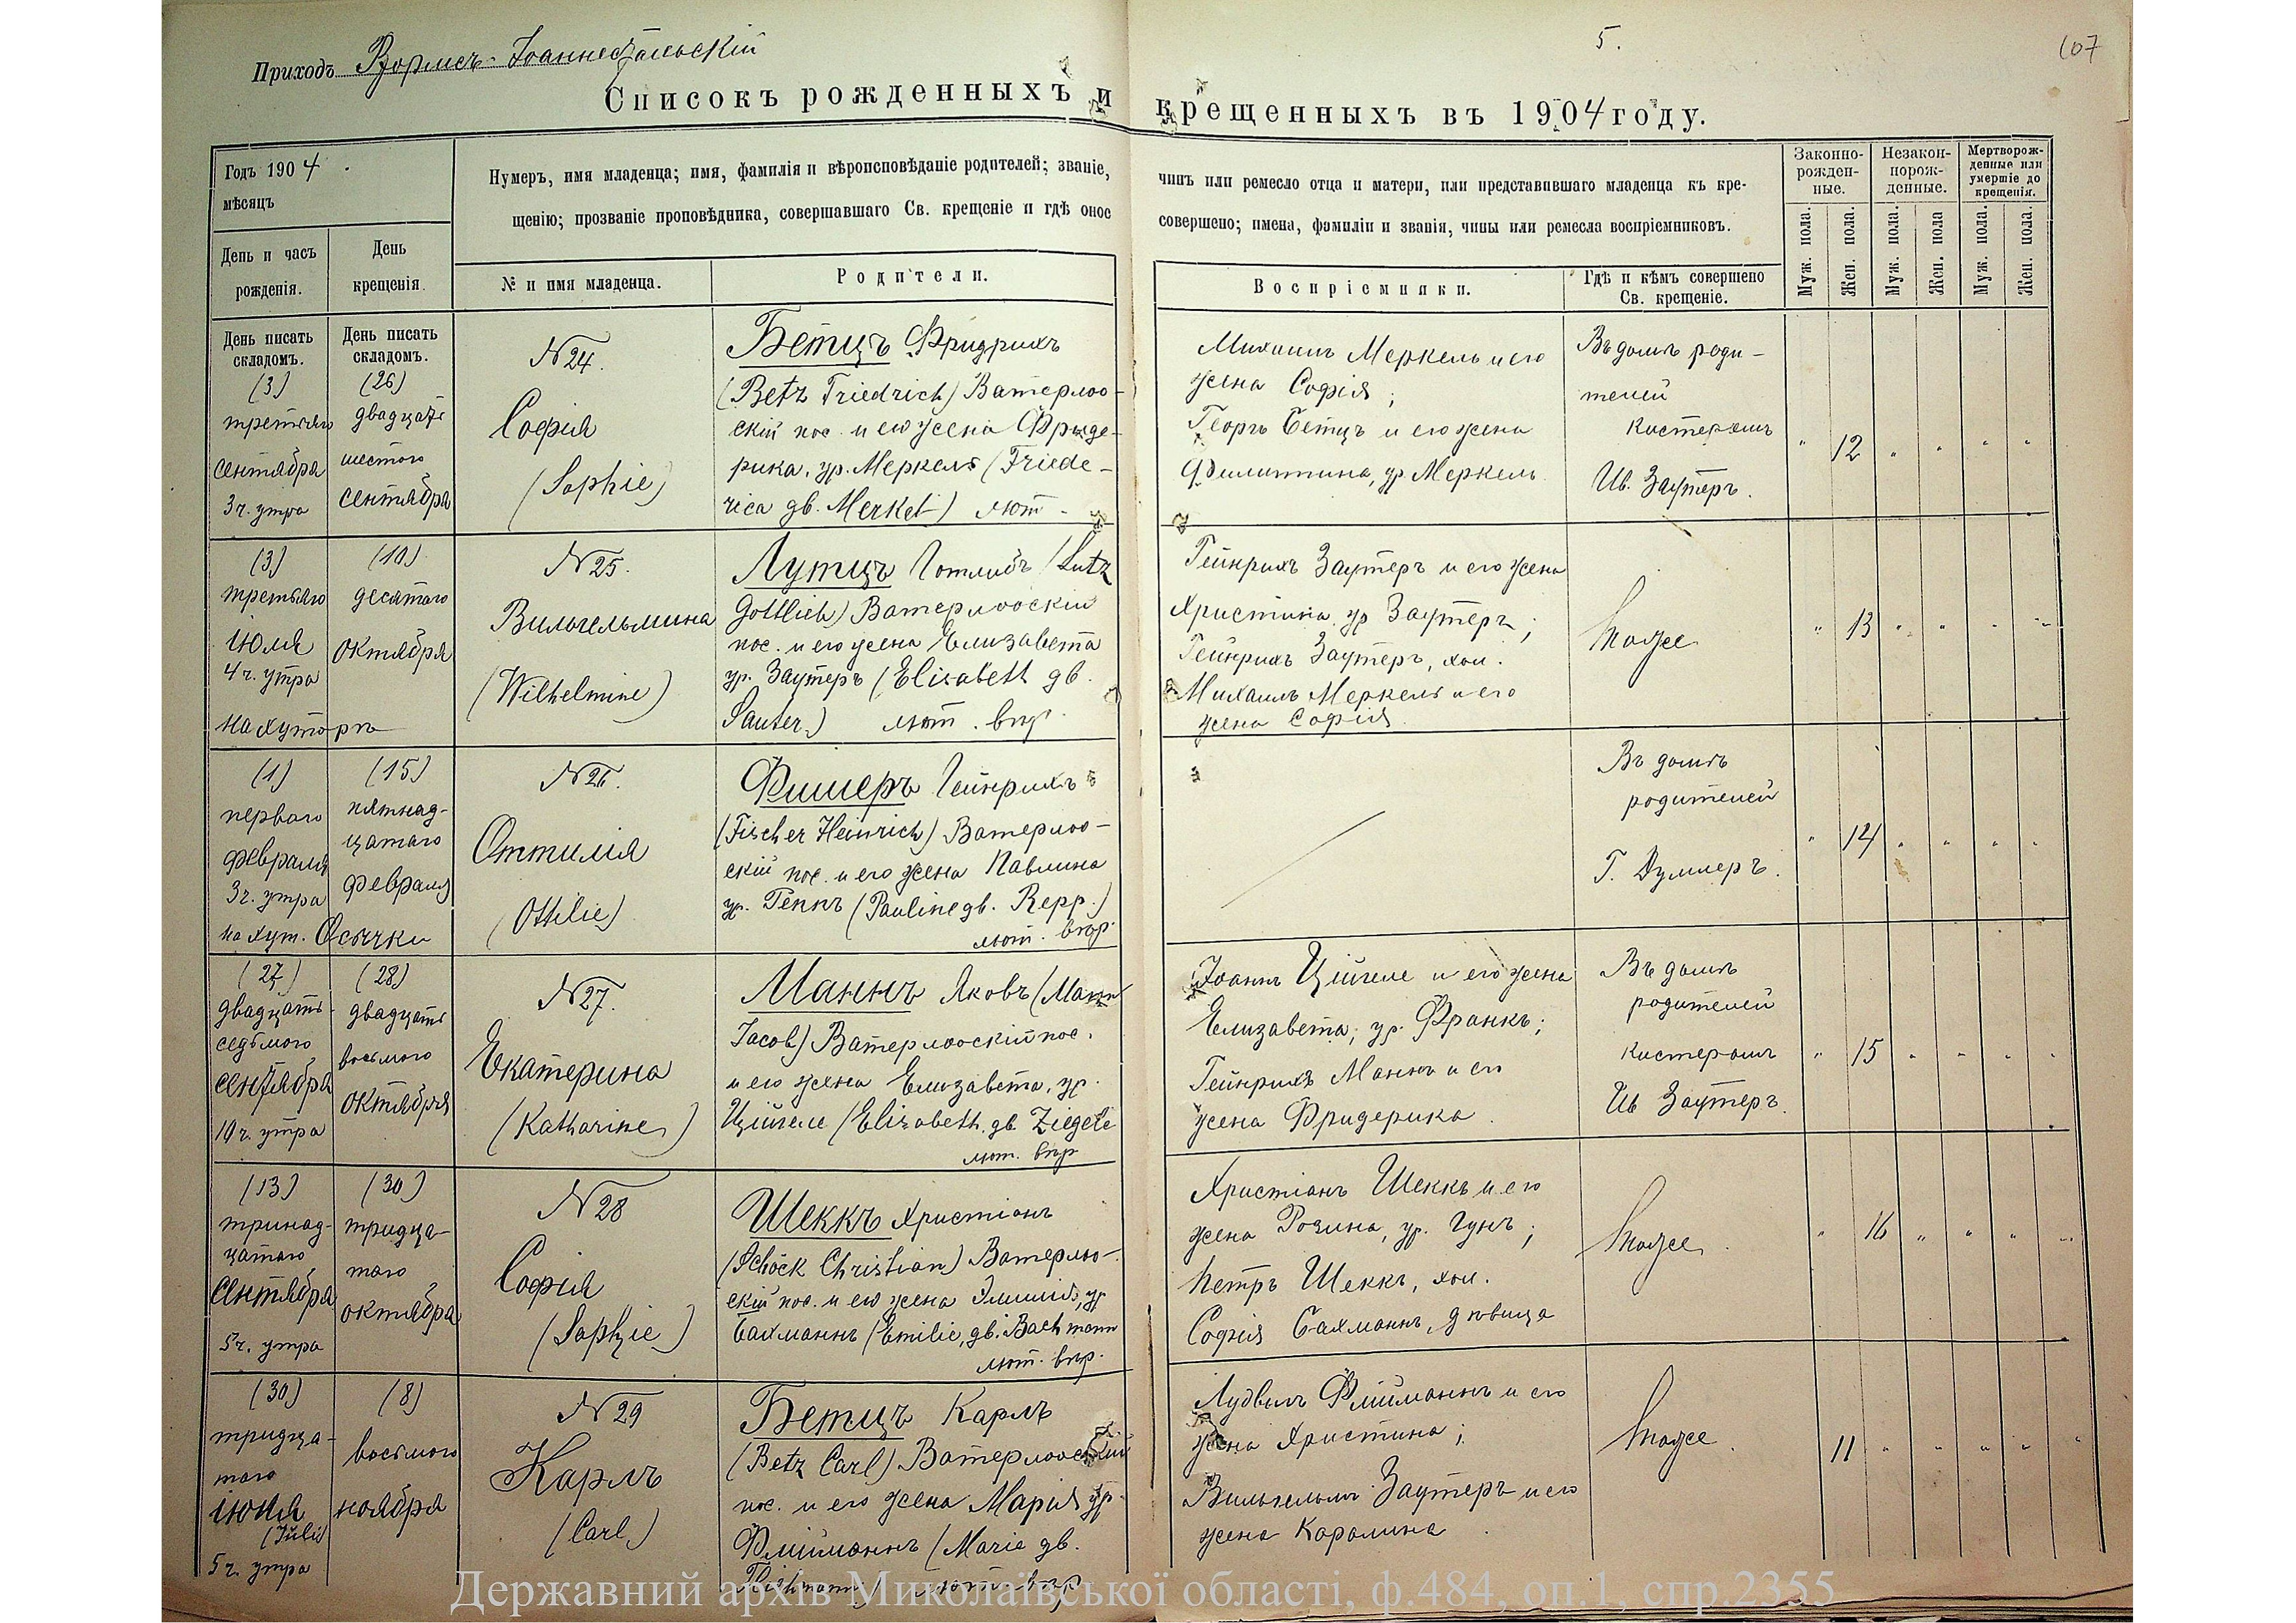 Приходъ Вормсъ-Іоаннестальскій
5.
107
Списокъ рожденныхъ и крещенныхъ въ 1904 году.
Годъ 1904
мѣсяцъ
День и часъ
рожденія.
День
крещенія.
Нумеръ, имя младенца; имя, фамилія и вѣроисповѣданіе родителей; званіе,
щенію; прозваніе проповѣдника, совершавшаго Св. крещеніе и гдѣ оное
№ и имя младенца.
Родители.
чинъ или ремесло отца и матери, или представившаго младенца къ кре-
совершено; имена, фамиліи и званія, чины или ремесла воспріемниковъ.
Воспріемники.
Гдѣ и кѣмъ совершено
Св. крещеніе.
Законно-
рожден-
ные.
Незакон-
норож-
денные.
Мертворож-
денные или
умершіе до
крещенія.
Муж. пола.
Жен. пола.
Муж. пола.
Жен. пола
Муж. пола.
Жен. пола.
День писать
складомъ.
(3)
третьяго
сентября
3 ч. утра
День писать
складомъ.
(26)
двадцать
шестого
сентября
№ 24.
Софія
(Sophie)
Бетцъ Фридрихъ
(Betz Friedrich) Ватерлоо-
скій пос. и его жена Фриде-
рика, ур. Меркель (Friede-
rica дв. Merkel) лют.
Михаилъ Меркель и его
жена Софія;
Георгъ Бетцъ и его жена
Филиппина, ур. Меркель
Въ домѣ роди-
телей
Кистеромъ
Ив. Заутеръ.
12
(3)
третьяго
іюля
4 ч. утра
на хуторѣ
(10)
десятаго
октября
№ 25.
Вильгельмина
(Wilhelmine)
Лутцъ Готлибъ (Lutz
Gottlieb) Ватерлооскій
пос. и его жена Елизавета
ур. Заутеръ (Elisabeth дв.
Sauter.) лют. вѣр.
Гейнрихъ Заутеръ и его жена
Христина, ур. Заутеръ;
Гейнрихъ Заутеръ, хол.
Михаилъ Меркель и его
жена Софія
тоже
13
(1)
перваго
февраля
3 ч. утра
на хут. Осички
(15)
пятнад-
цатаго
февраля
№ 26.
Оттилія
(Ottilie)
Фишеръ Гейнрихъ
(Fischer Heinrich) Ватерлоо-
скій пос. и его жена Павлина
ур. Реппъ (Pauline дв. Repp.)
лют. вѣр.
Въ домѣ
родителей
Г. Думлеръ.
14
(27)
двадцать
седьмого
сентября
10 ч. утра
(28)
двадцать
восьмого
октября
№ 27.
Екатерина
(Katharine)
Маннъ Яковъ (Mann
Jacob) Ватерлооскій пос.
и его жена Елизавета, ур.
Цигеле (Elisabeth, дв. Ziegele
лют. вѣр
Іоаннъ Цигеле и его жена
Елизавета, ур. Франкъ;
Гейнрихъ Маннъ и его
жена Фридерика
Въ домѣ
родителей
Кистеромъ
Ив Заутеръ.
15
(13)
тринад-
цатаго
сентября
5 ч. утра
(30)
тридца-
таго
октября
№ 28
Софія
(Sophie)
Шеккъ Христіанъ
(Schöck Christian) Ватерлоо-
скій пос. и его жена Эмилія, ур
Бахманнъ (Emilie, дв. Bachmann
лют. вѣр.
Христіанъ Шеккъ и его
жена Розина, ур. Гунъ;
Петръ Шеккъ, хол.
Софія Бахманнъ, дѣвица
тоже
16
(30)
тридца-
таго
іюля
(Juli)
5 ч. утра
(8)
восьмого
ноября
№ 29
Карлъ
(Carl)
Бетцъ Карлъ
(Betz Carl) Ватерлооскій
пос. и его жена Марія ур.
Флейманнъ (Marie дв.
лют. вѣр
Лудвигъ Флейманнъ и его
жена Христина;
Вильгельмъ Заутеръ и его
жена Каролина
тоже
11
Державний архів Миколаївської області, ф.484, оп.1, спр.2355